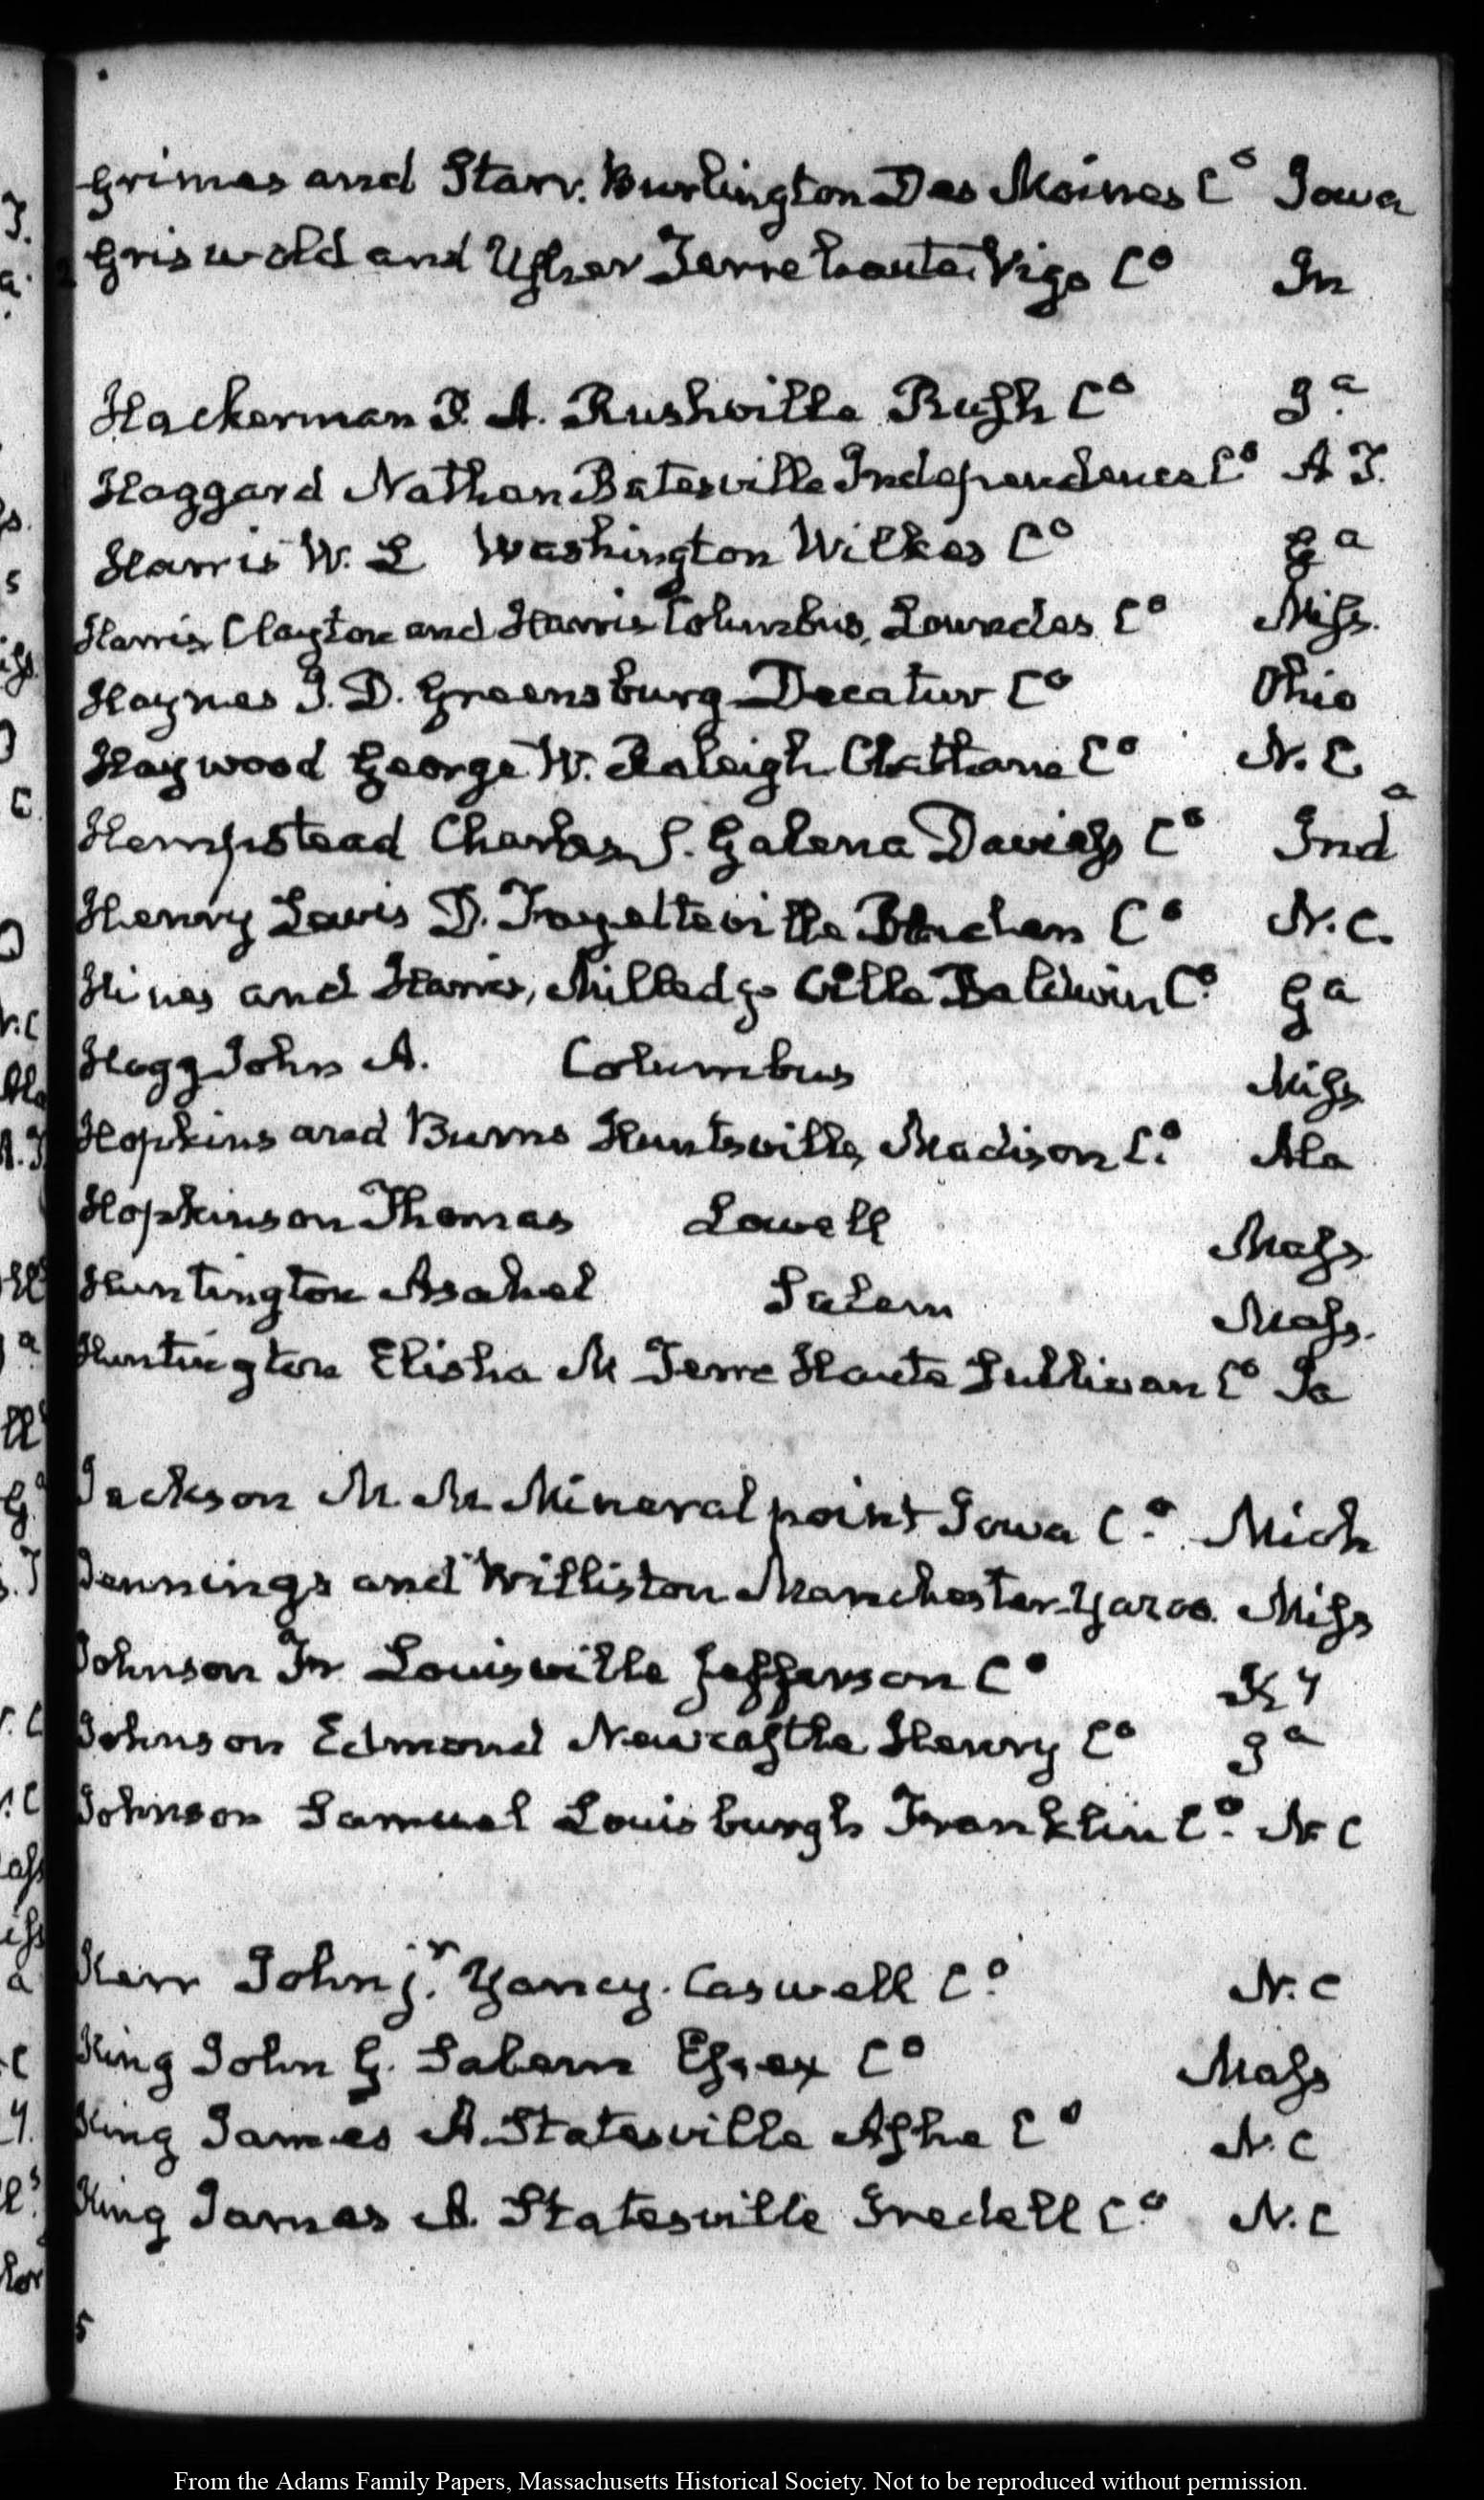 Grimes and Starr. Burlington Des Moines Co Iowa
Griswold and Usher Terre haute. Vigo Co In
Hackerman P. A. Rushville Rush Co Ia
Haggard Nathan Batesville Independence Co A T.
Harris W. L Washington Wilkes Co Ga
Harris Clayton and Harris Columbus, Lowndes Co Miss.
Haynes J. D. Greensburg Decatur Co Ohio
Haywood George W. Raleigh Chatham Co N. C
Hempstead Charles S. Galena Daviess Co Inda
Henry Lewis D. Fayetteville Co N. C.
Hines and Harris, Milledge Ville Baldwin Co Ga
Hogg John A. Columbus Miss
Hopkins and Burns Huntsville, Madison Co. Ala
Hopkinson Thomas Lowell Mass.
Huntington Asahel Salem Mass.
Huntington Elisha M Terre Haute Sullivan Co Ia
Jackson M. M. Mineral point Iowa Co. Mich
Jennings and Williston Manchester Yazoo. Miss
Johnson Jr Louisville Jefferson Co Ky
Johnson Edmond Newcastle Henry Co Ia
Johnson Samuel Louisburgh Franklin Co. N C
Kerr John jr. Yancy. Caswell Co. N. C
King John G. Salem Essex Co Mass
King James A. Statesville Ashe Co N. C
King James A. Statesville Iredell Co. N. C
From the Adams Family Papers, Massachusetts Historical Society. Not to be reproduced without permission.